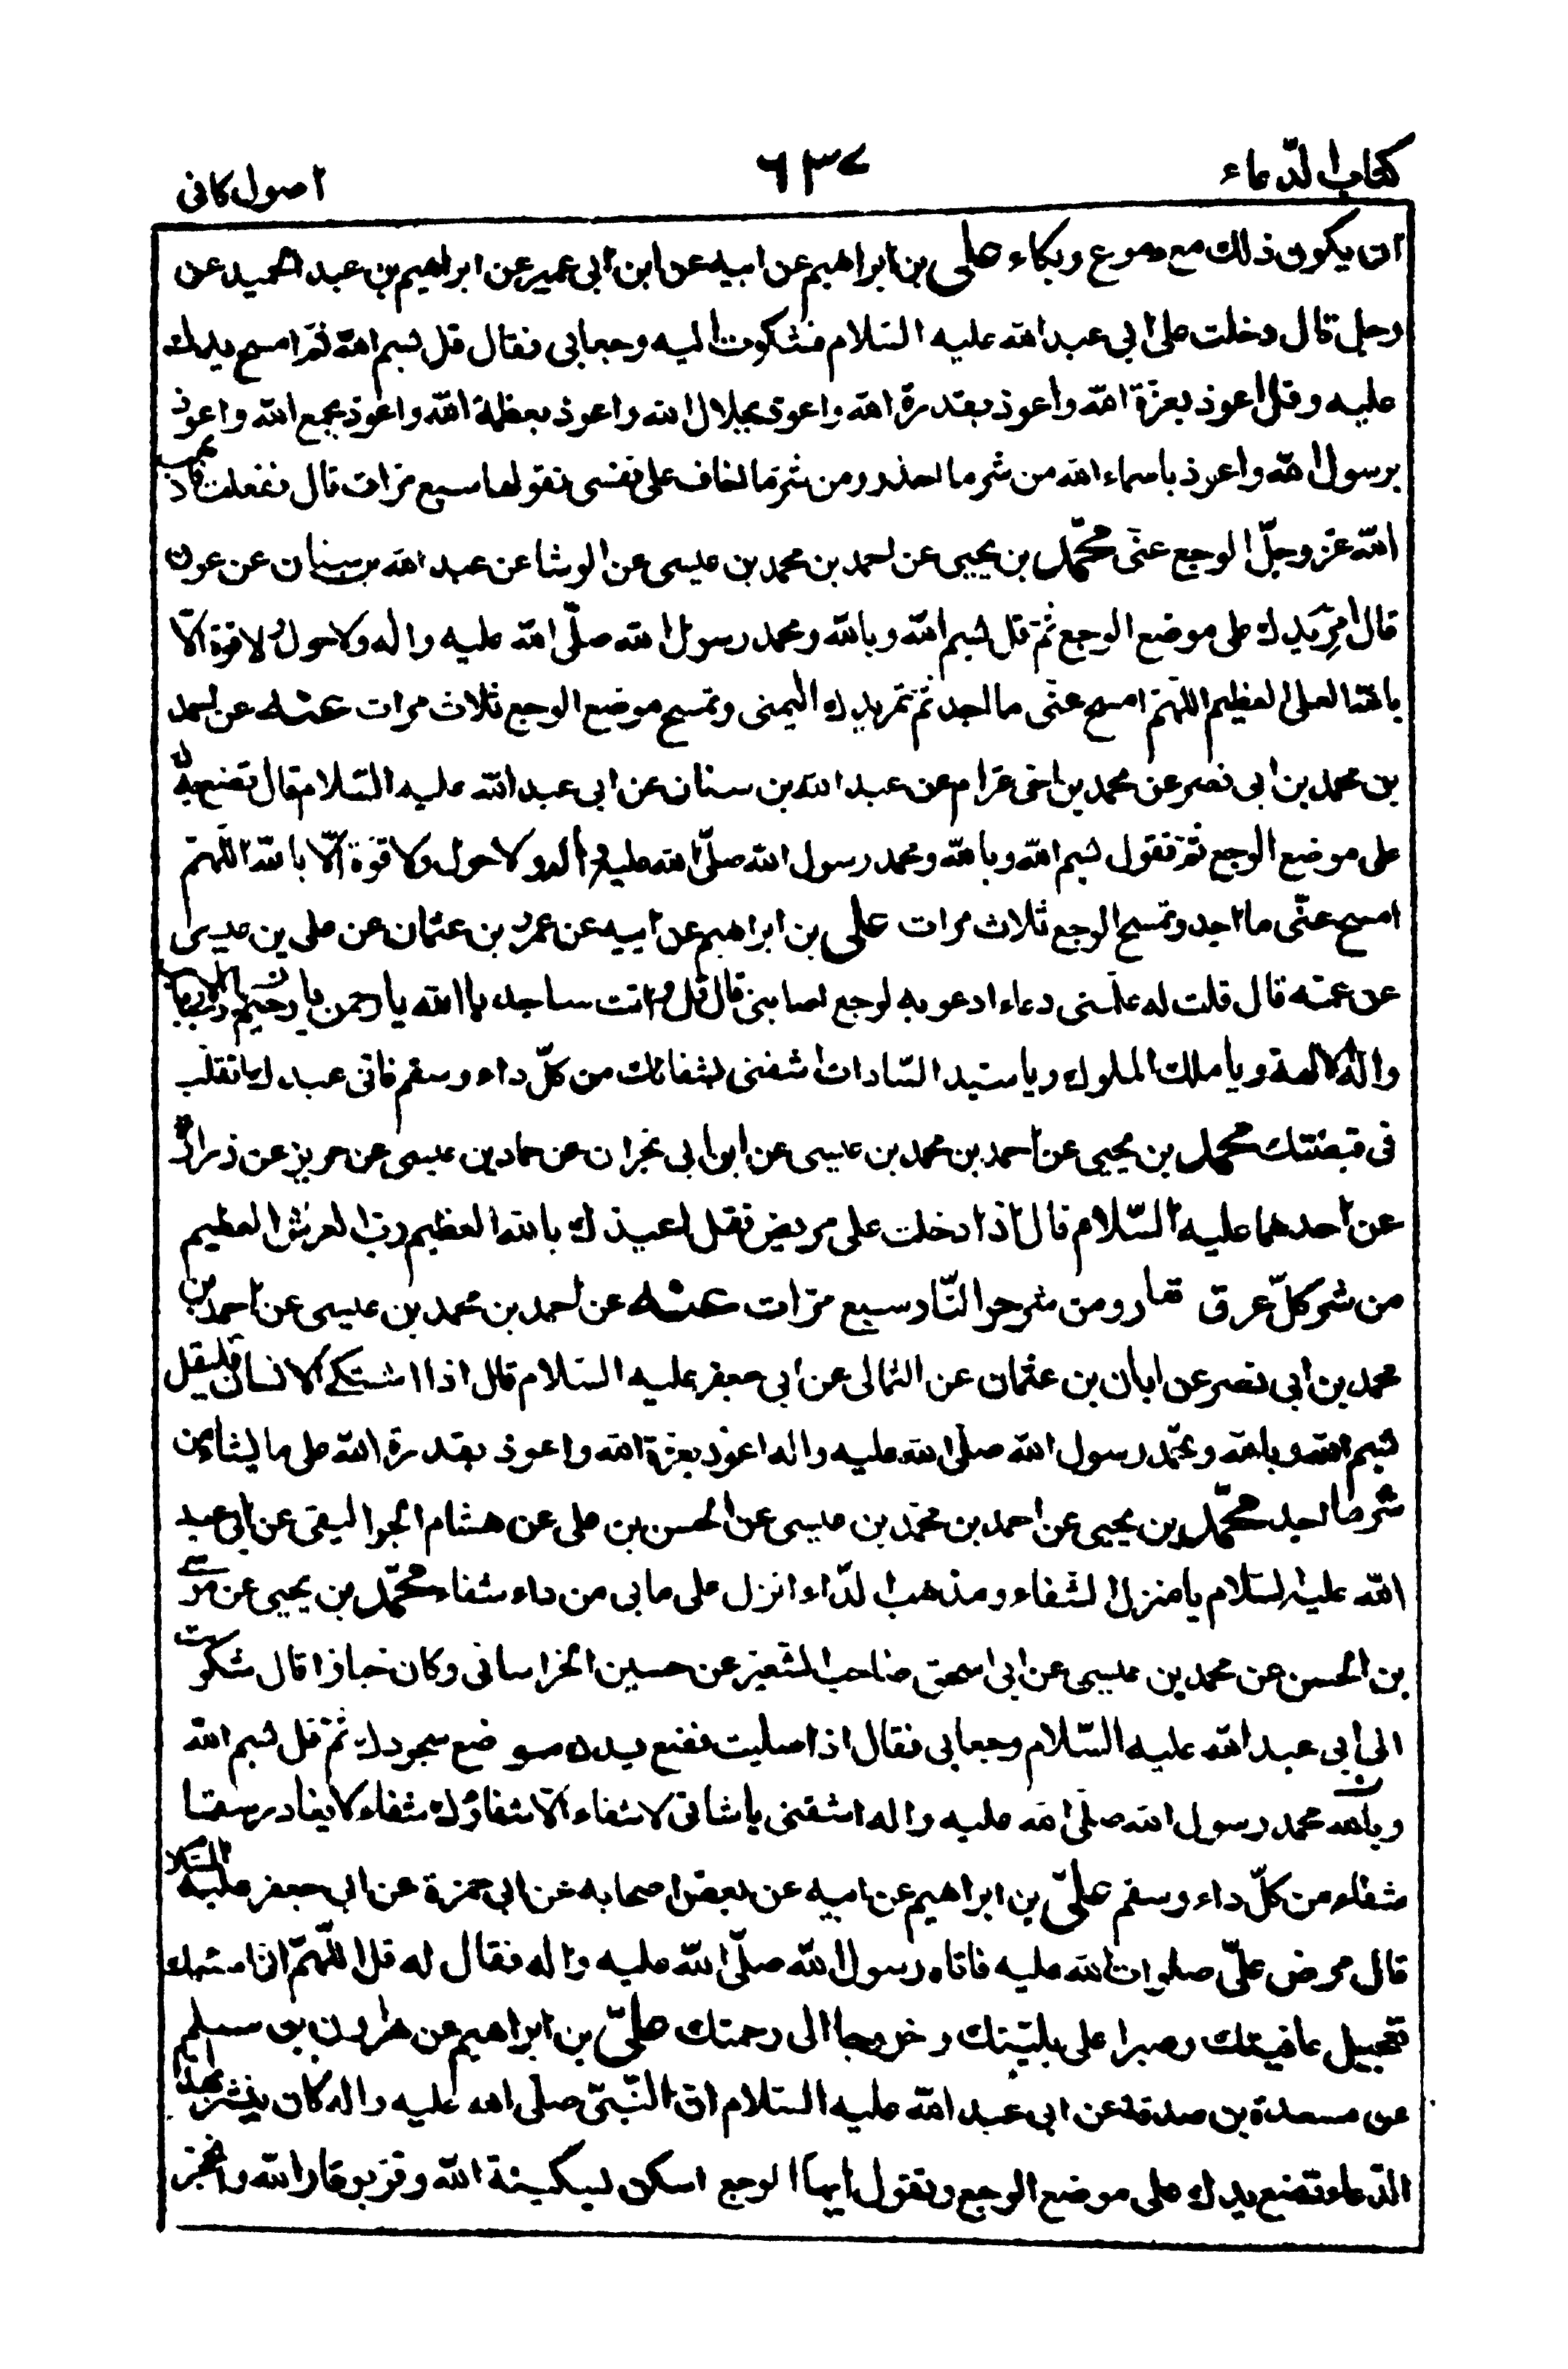 كتاب الدّعاء
٦٣٧
اصول كافى
ان يكون ذلك مع دموع وبكاء على بن ابراهيم عن ابيه عن ابن ابى عمير عن ابراهيم بن عبد الحميد عن
رجل قال دخلت على ابى عبد الله عليه السّلام فشكوت اليه وجعابى فقال قل بسم الله ثمّ امسح يدك
عليه وقل اعوذ بعزّة الله واعوذ بقدرة الله واعوذ بجلال الله واعوذ بعظمة الله واعوذ بجمع الله واعوذ
برسول الله واعوذ باسماء الله من شر ما احذر ومن شرّ ما اخاف على نفسى تقولها سبع مرّات قال ففعلت فاذهب
الله عزّ وجلّ الوجع عنّى محمّد بن يحيى عن احمد بن محمد بن عيسى عن الوشا عن عبد الله بن سنان عن عون
قال امِرّ يدك على موضع الوجع ثمّ قل بسم الله وبالله ومحمد رسول الله صلّى الله عليه واله ولا حول ولا قوة الّا
بالله العلى العظيم اللّهمّ امسح عنّى ما اجد ثمّ تمرّ يدك اليمنى وتمسح موضع الوجع ثلاث مرات عنه عن احمد
بن محمد بن ابى نصر عن محمد بن اخى غرام عن عبد الله بن سنان عن ابى عبد الله عليه السّلام قال تضع يدك
على موضع الوجع ثمّ تقول بسم الله وبالله ومحمد رسول الله صلّى الله عليه واله ولا حول ولا قوّة الّا بالله اللّهمّ
امسح عنّى ما اجد وتمسح الوجع ثلاث مرات على بن ابراهيم عن ابيه عن عمرو بن عثمان عن على بن عيسى
عن عمّه قال قلت له علّمنى دعاء ادعو به لوجع اصابنى قال قل وانت ساجد يا الله يا رحمن يا رحيم يا ربّ الارباب
واله الالهة ويا ملك الملوك ويا سيّد السّادات اشفنى بشفائك من كلّ داء وسقم فانّى عبدك اتقلّب
فى قبضتك محمد بن يحيى عن احمد بن محمد بن عيسى عن ابن ابى نجران عن حماد بن عيسى عن حريز عن زرارة
عن احدهما عليه السّلام قال اذا دخلت على مريض فقل اعيذك بالله العظيم ربّ العرش العظيم
من شر كلّ عرق نعار ومن شر حر النّار سبع مرّات عنه عن احمد بن محمد بن عيسى عن احمد بن
محمد بن ابى نصر عن ابان بن عثمان عن الثمالى عن ابى جعفر عليه السّلام قال اذا اشتكى الانسان فليقل
بسم الله وبالله ومحمّد رسول الله صلّى الله عليه واله اعوذ بعزّة الله واعوذ بقدرة الله على ما يشاء من
شر ما اجد محمّد بن يحيى عن احمد بن محمّد بن عيسى عن الحسن بن على عن هشام الجواليقى عن ابى عبد
الله عليه السّلام يا منزل الشّفاء ومذهب الدّاء انزل على ما بى من داء شفاء محمّد بن يحيى عن موسى
بن الحسن عن محمد بن عيسى عن ابى اسحق صاحب الشّعير عن حسين الخراسانى وكان خبازا قال شكوت
الى ابى عبد الله عليه السّلام وجعابى فقال اذا صليت فضع يدك موضع سجودك ثمّ قل بسم الله
وبالله محمد رسول الله صلّى الله عليه واله اشفنى يا شافى لا شفاء الّا شفاؤك شفاء لا يغادر سقما
شفاء من كلّ داء وسقم علىّ بن ابراهيم عن ابيه عن بعض اصحابه عن ابى حمزة عن ابى جعفر عليه السّلا
قال مرض علىّ صلوات الله عليه فاتاه رسول الله صلّى الله عليه واله فقال له قل اللّهمّ انّى اسئلك
تعجيل عافيتك وصبرا على بليّتك وخروجا الى رحمتك علىّ بن ابراهيم عن هارون بن مسلم
عن مسعدة بن صدقة عن ابى عبد الله عليه السّلام انّ النّبىّ صلّى الله عليه واله كان ينشر بهذا
الدّعاء تضع يدك على موضع الوجع وتقول ايها الوجع اسكن بسكينة الله وقرّ بوقار الله وانحجز